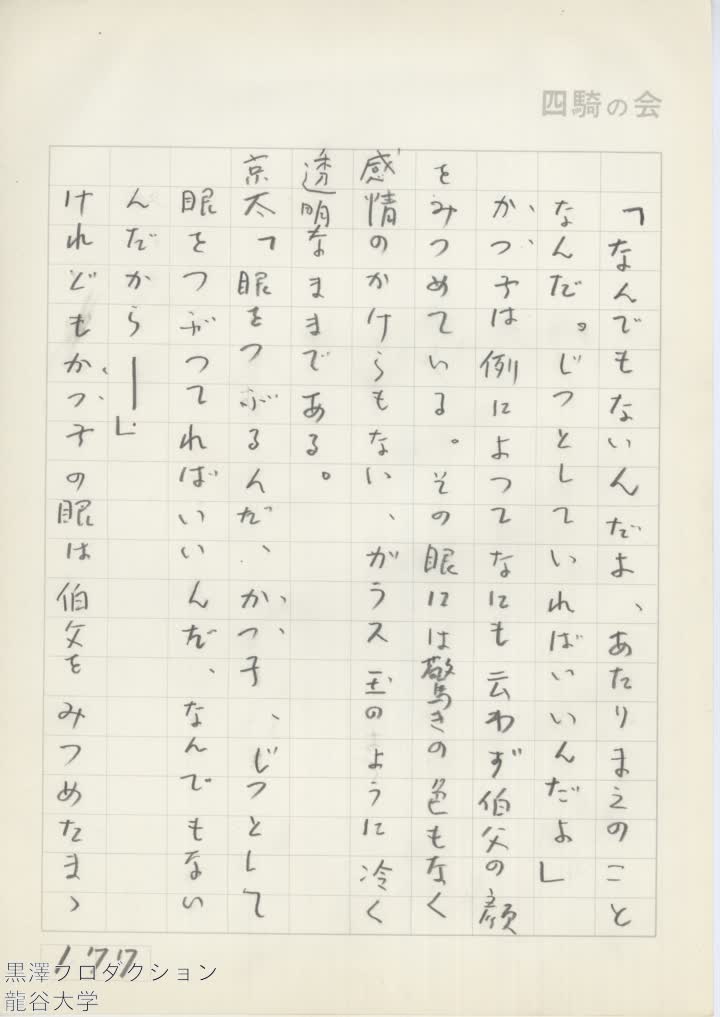 四騎の会
「なんでもないんだよ、あたりまえのこと
なんだ。じつとしていればいいんだよ」
かつ子は例によつてなにも云わず伯父の顔
をみつめている。その眼には驚きの色もなく
感情のかけらもない、ガラス玉のように冷く
透明なままである。
京太「眼をつぶるんだ、かつ子、じつとして
眼をつぶつてればいいんだ、なんでもない
んだから――」
けれどもかつ子の眼は伯父をみつめたまゝ
177
黒澤プロダクション
龍谷大学